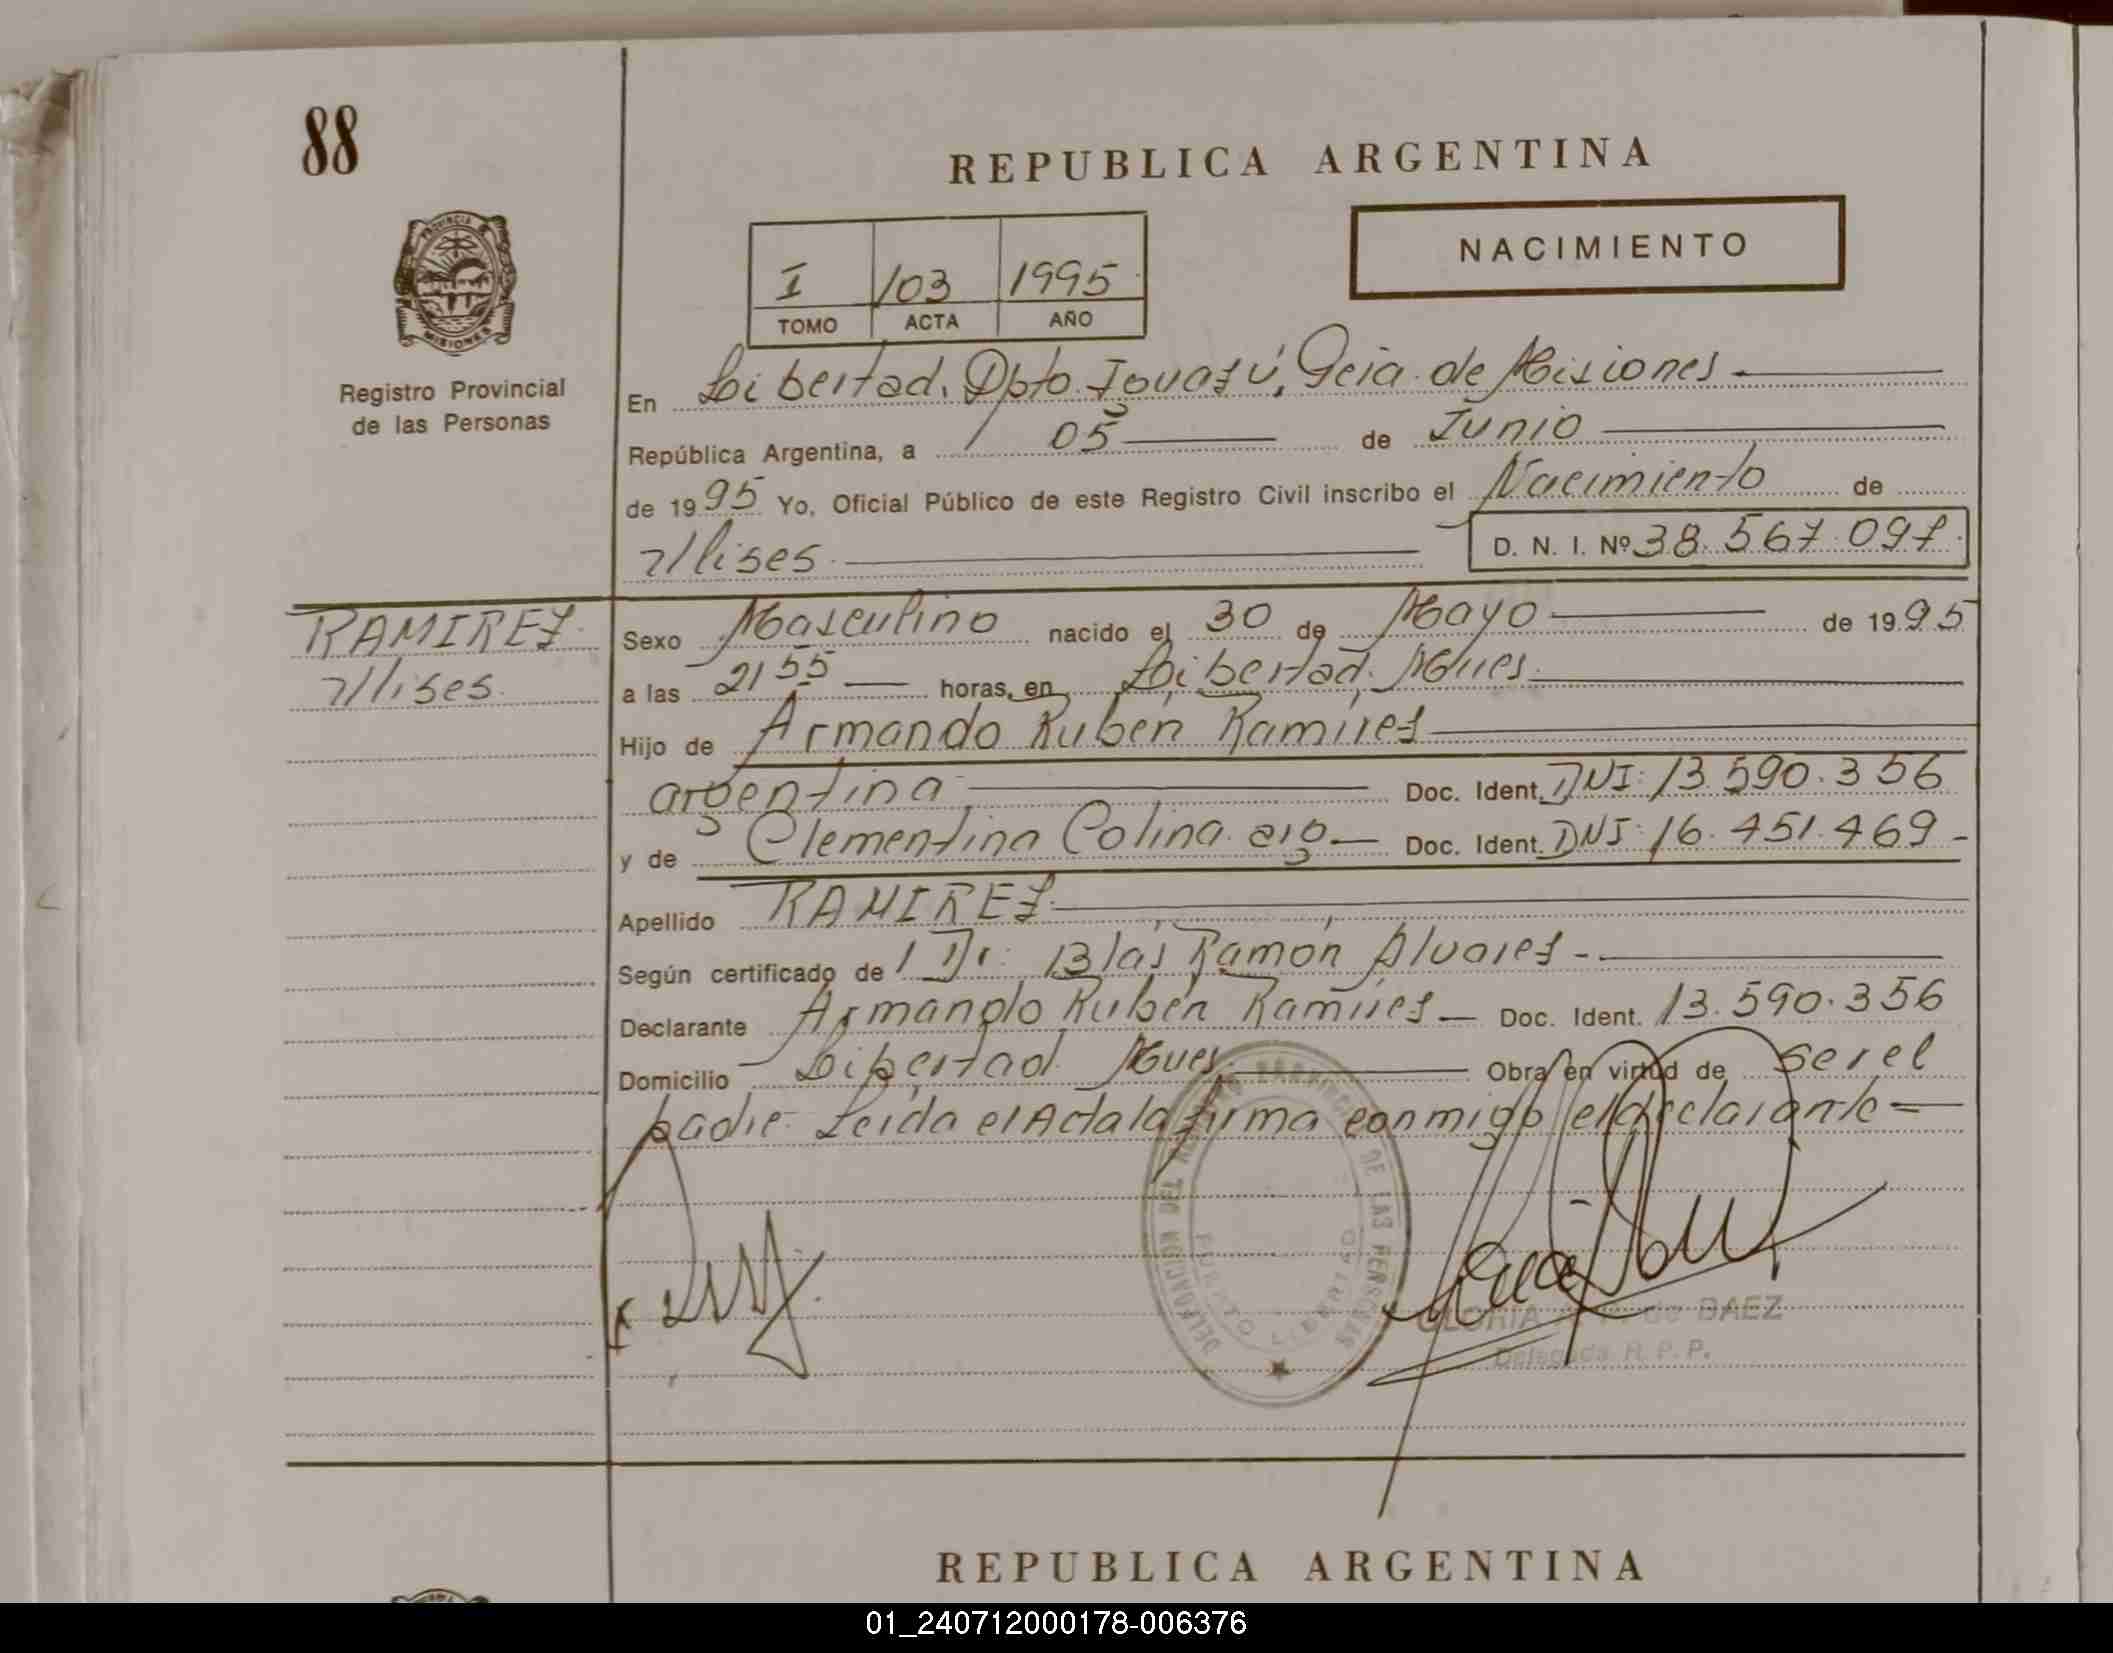 88
REPUBLICA ARGENTINA
NACIMIENTO
I 103 1995
TOMO ACTA AÑO
PROVINCIA
MISIONES
Registro Provincial
de las Personas
En Libertad, Dpto. Iguazú, Pcia. de Misiones
República Argentina, a 05 de Junio
de 1995 Yo, Oficial Público de este Registro Civil inscribo el Nacimiento de
Ulises D. N. I. Nº 38.567.097
RAMIREZ
Ulises
Sexo Masculino nacido el 30 de Mayo de 1995
a las 21 55 horas, en Libertad. Mnes
Hijo de Armando Rubén Ramírez
argentina Doc. Ident. DNI: 13.590.356
y de Clementina Colina arg Doc. Ident. DNI: 16.451.469
Apellido RAMIREZ
Según certificado de Dr: Blás Ramón Alvarez
Declarante Armando Rubén Ramírez Doc. Ident. 13.590.356
Domicilio Libertad Mnes Obra en virtud de ser el
padre Leída el Acta la firma conmigo el declarante
DELEGACION DEL REGISTRO PROVINCIAL DE LAS PERSONAS
PUERTO LIBERTAD
GLORIA de BAEZ
Delegada R. P. P.
REPUBLICA ARGENTINA
01_240712000178-006376